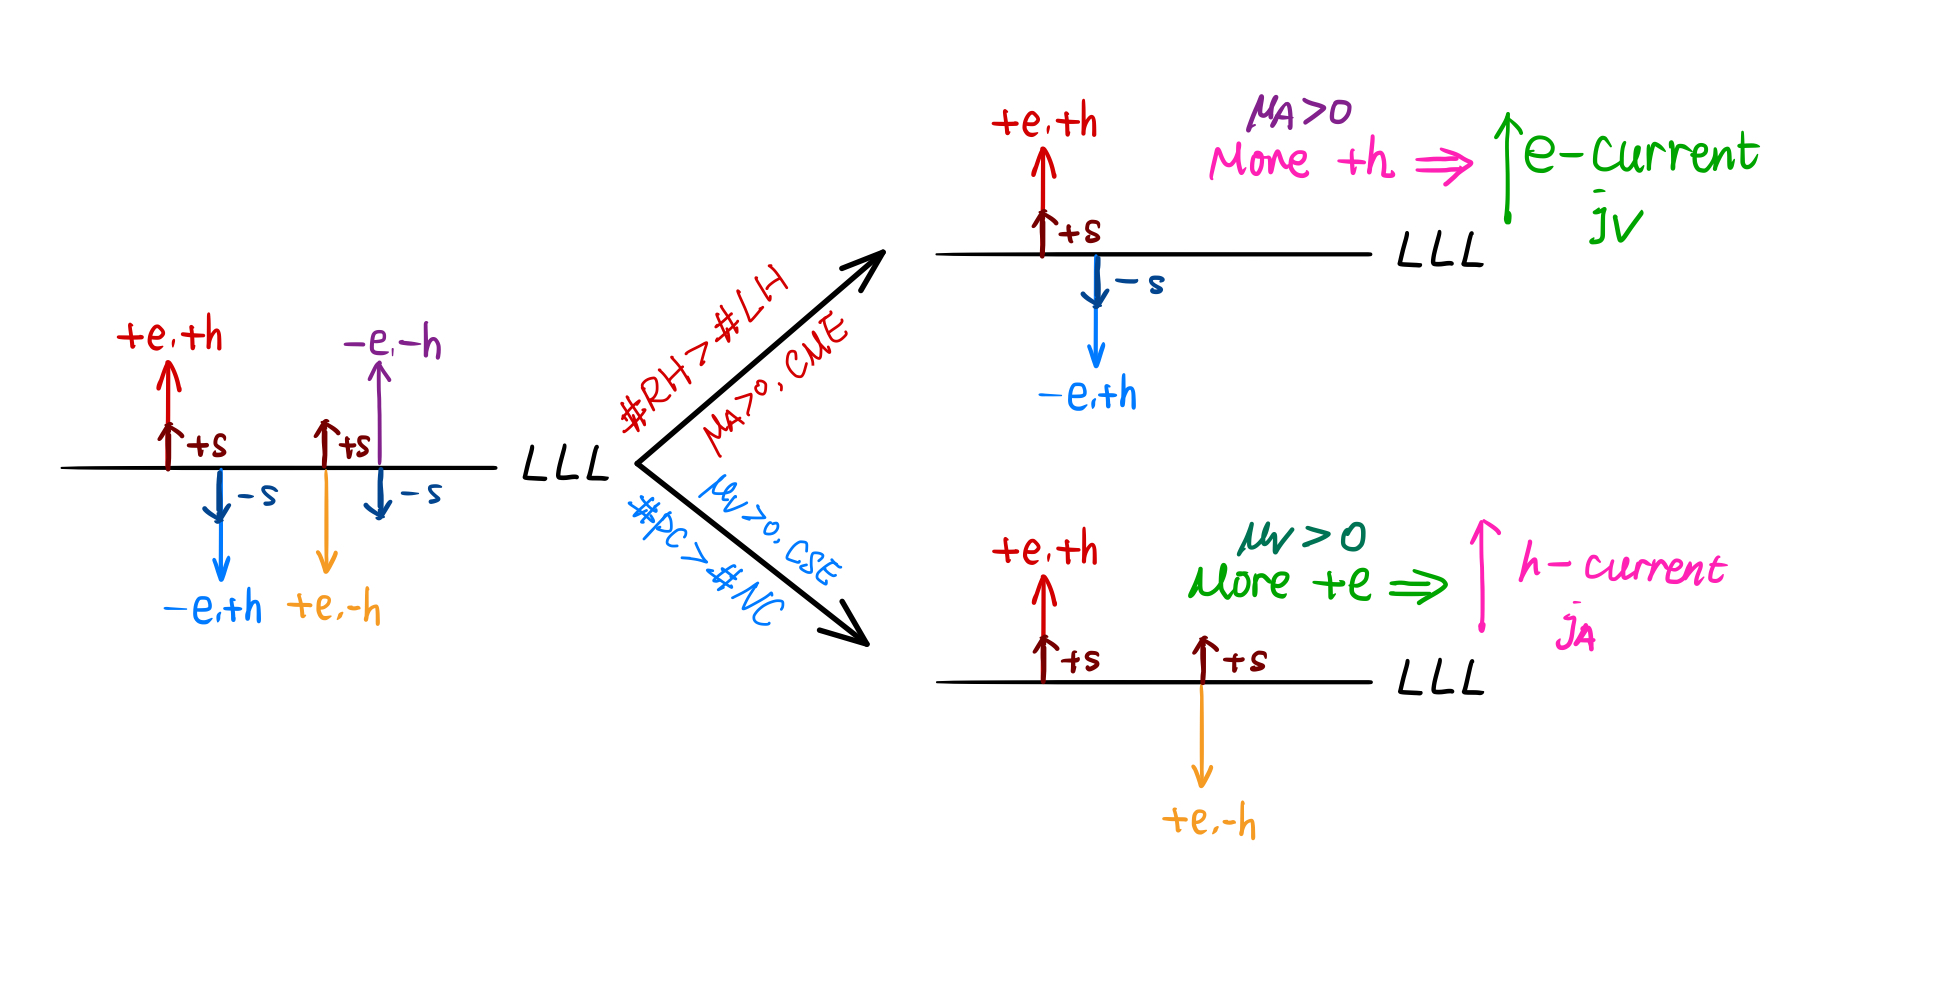 +e,+h
-e,-h
+s
+s
-s
-s
-e,+h
+e,-h
LLL
#RH>#LH
μA>0, CME
μV>0, CSE
#PC>#NC
+e,+h
+s
-s
-e,+h
LLL
μA>0
More +h ⇒ e-current
jV
+e,+h
+s
+s
+e,-h
LLL
μV>0
More +e ⇒ h-current
jA